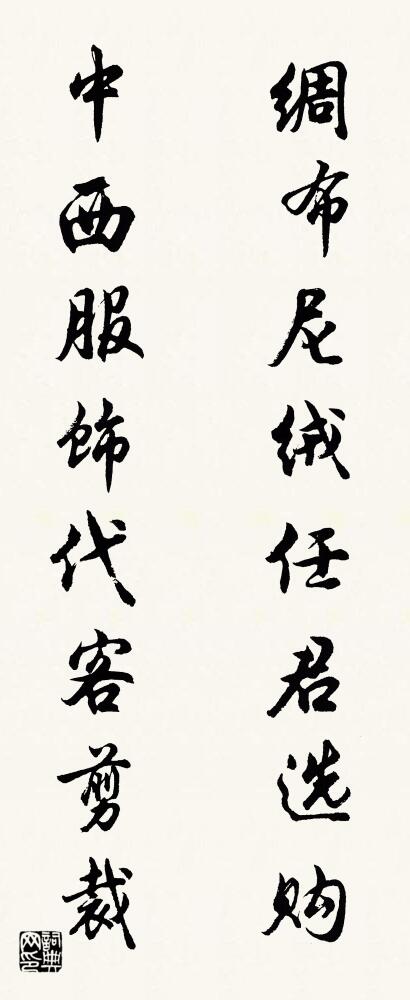 绸布尼绒任君选购
中西服饰代客剪裁
词典网印